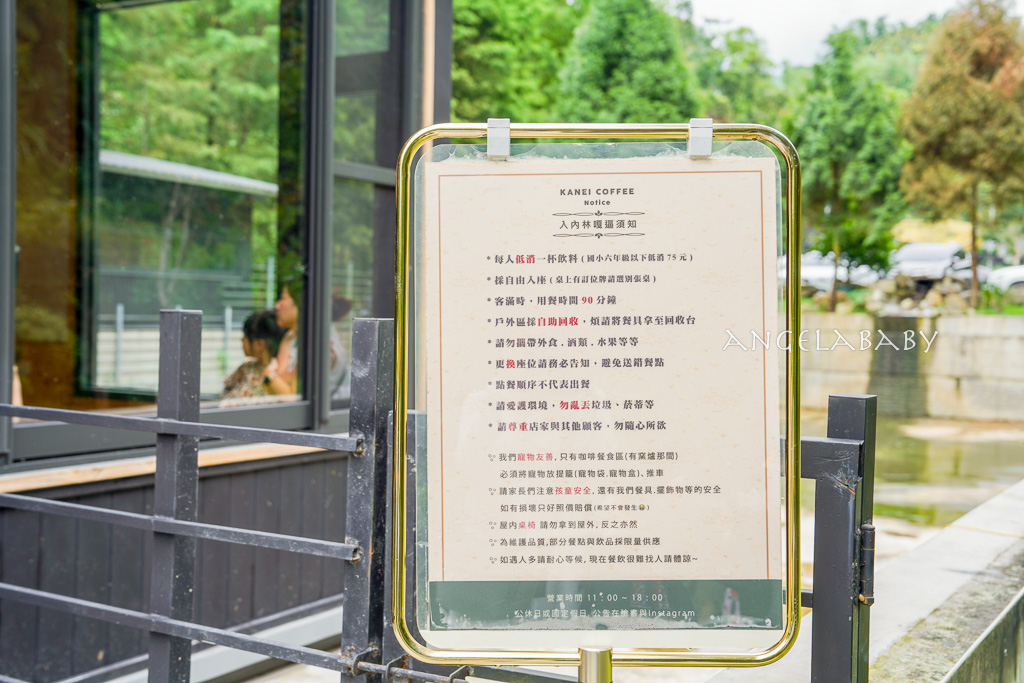 KANEI COFFEE
Notice
入內林嘎逼須知
* 每人低消一杯飲料 ( 國小六年級以下低消 75 元 )
* 採自由入座 ( 桌上有訂位牌請選別張桌 )
* 客滿時，用餐時間 90 分鐘
* 戶外區採自助回收，煩請將餐具拿至回收台
* 請勿攜帶外食 . 酒類 . 水果等等
* 更換座位請務必告知，避免送錯餐點
* 點餐順序不代表出餐
* 請愛護環境，勿亂丟垃圾、菸蒂等
* 請尊重店家與其他顧客，勿隨心所欲
我們寵物友善, 只有咖啡餐食區(有窯爐那間)
必須將寵物放提籠(寵物袋.寵物盒)、推車
請家長們注意孩童安全, 還有我們餐具.擺飾物等的安全
如有損壞只好照價賠償(希望不會發生😂)
屋内桌椅 請勿拿到屋外, 反之亦然
為維護品質,部分餐點與飲品採限量供應
如遇人多請耐心等候, 現在餐飲很難找人請體諒~
營業時間 11：00 ~ 18：00
公休日或國定假日, 公告在臉書與Instagram
ANGELABABY